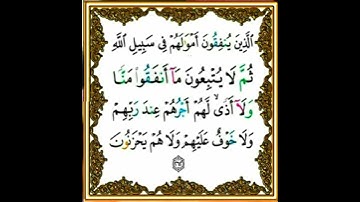 الَّذِينَ يُنفِقُونَ أَمْوَٰلَهُمْ فِى سَبِيلِ اللَّهِ
ثُمَّ لَا يُتْبِعُونَ مَآ أَنفَقُوا۟ مَنًّا
وَلَآ أَذًى ۙ لَّهُمْ أَجْرُهُمْ عِندَ رَبِّهِمْ
وَلَا خَوْفٌ عَلَيْهِمْ وَلَا هُمْ يَحْزَنُونَ